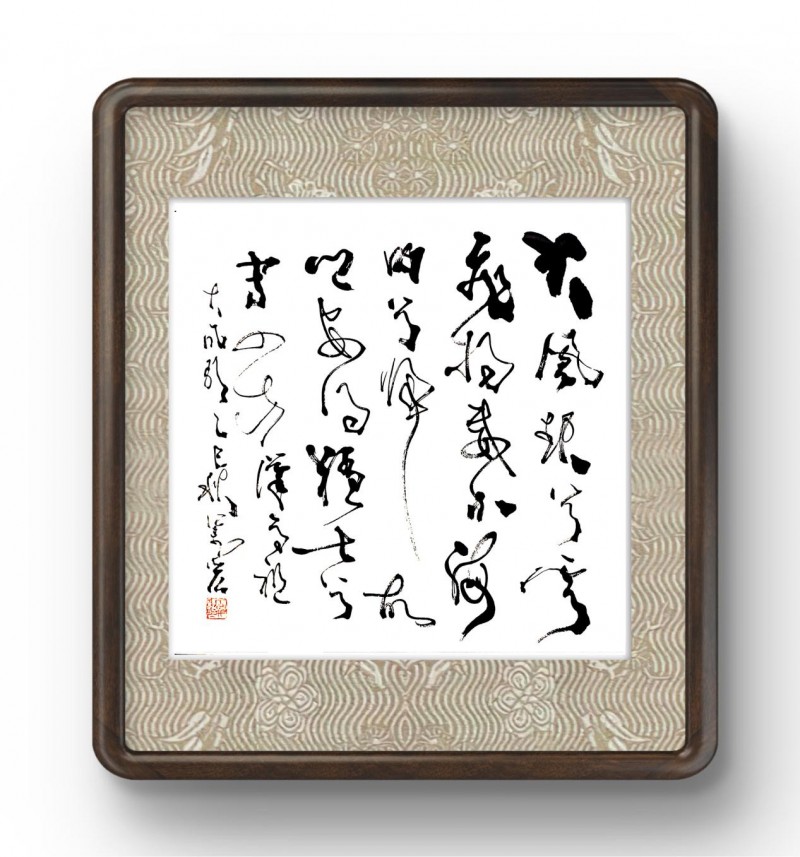 大風起兮雲
飛揚威加海
内兮歸故
鄉安得猛士兮
守四方漢高祖
大風歌乙巳秋